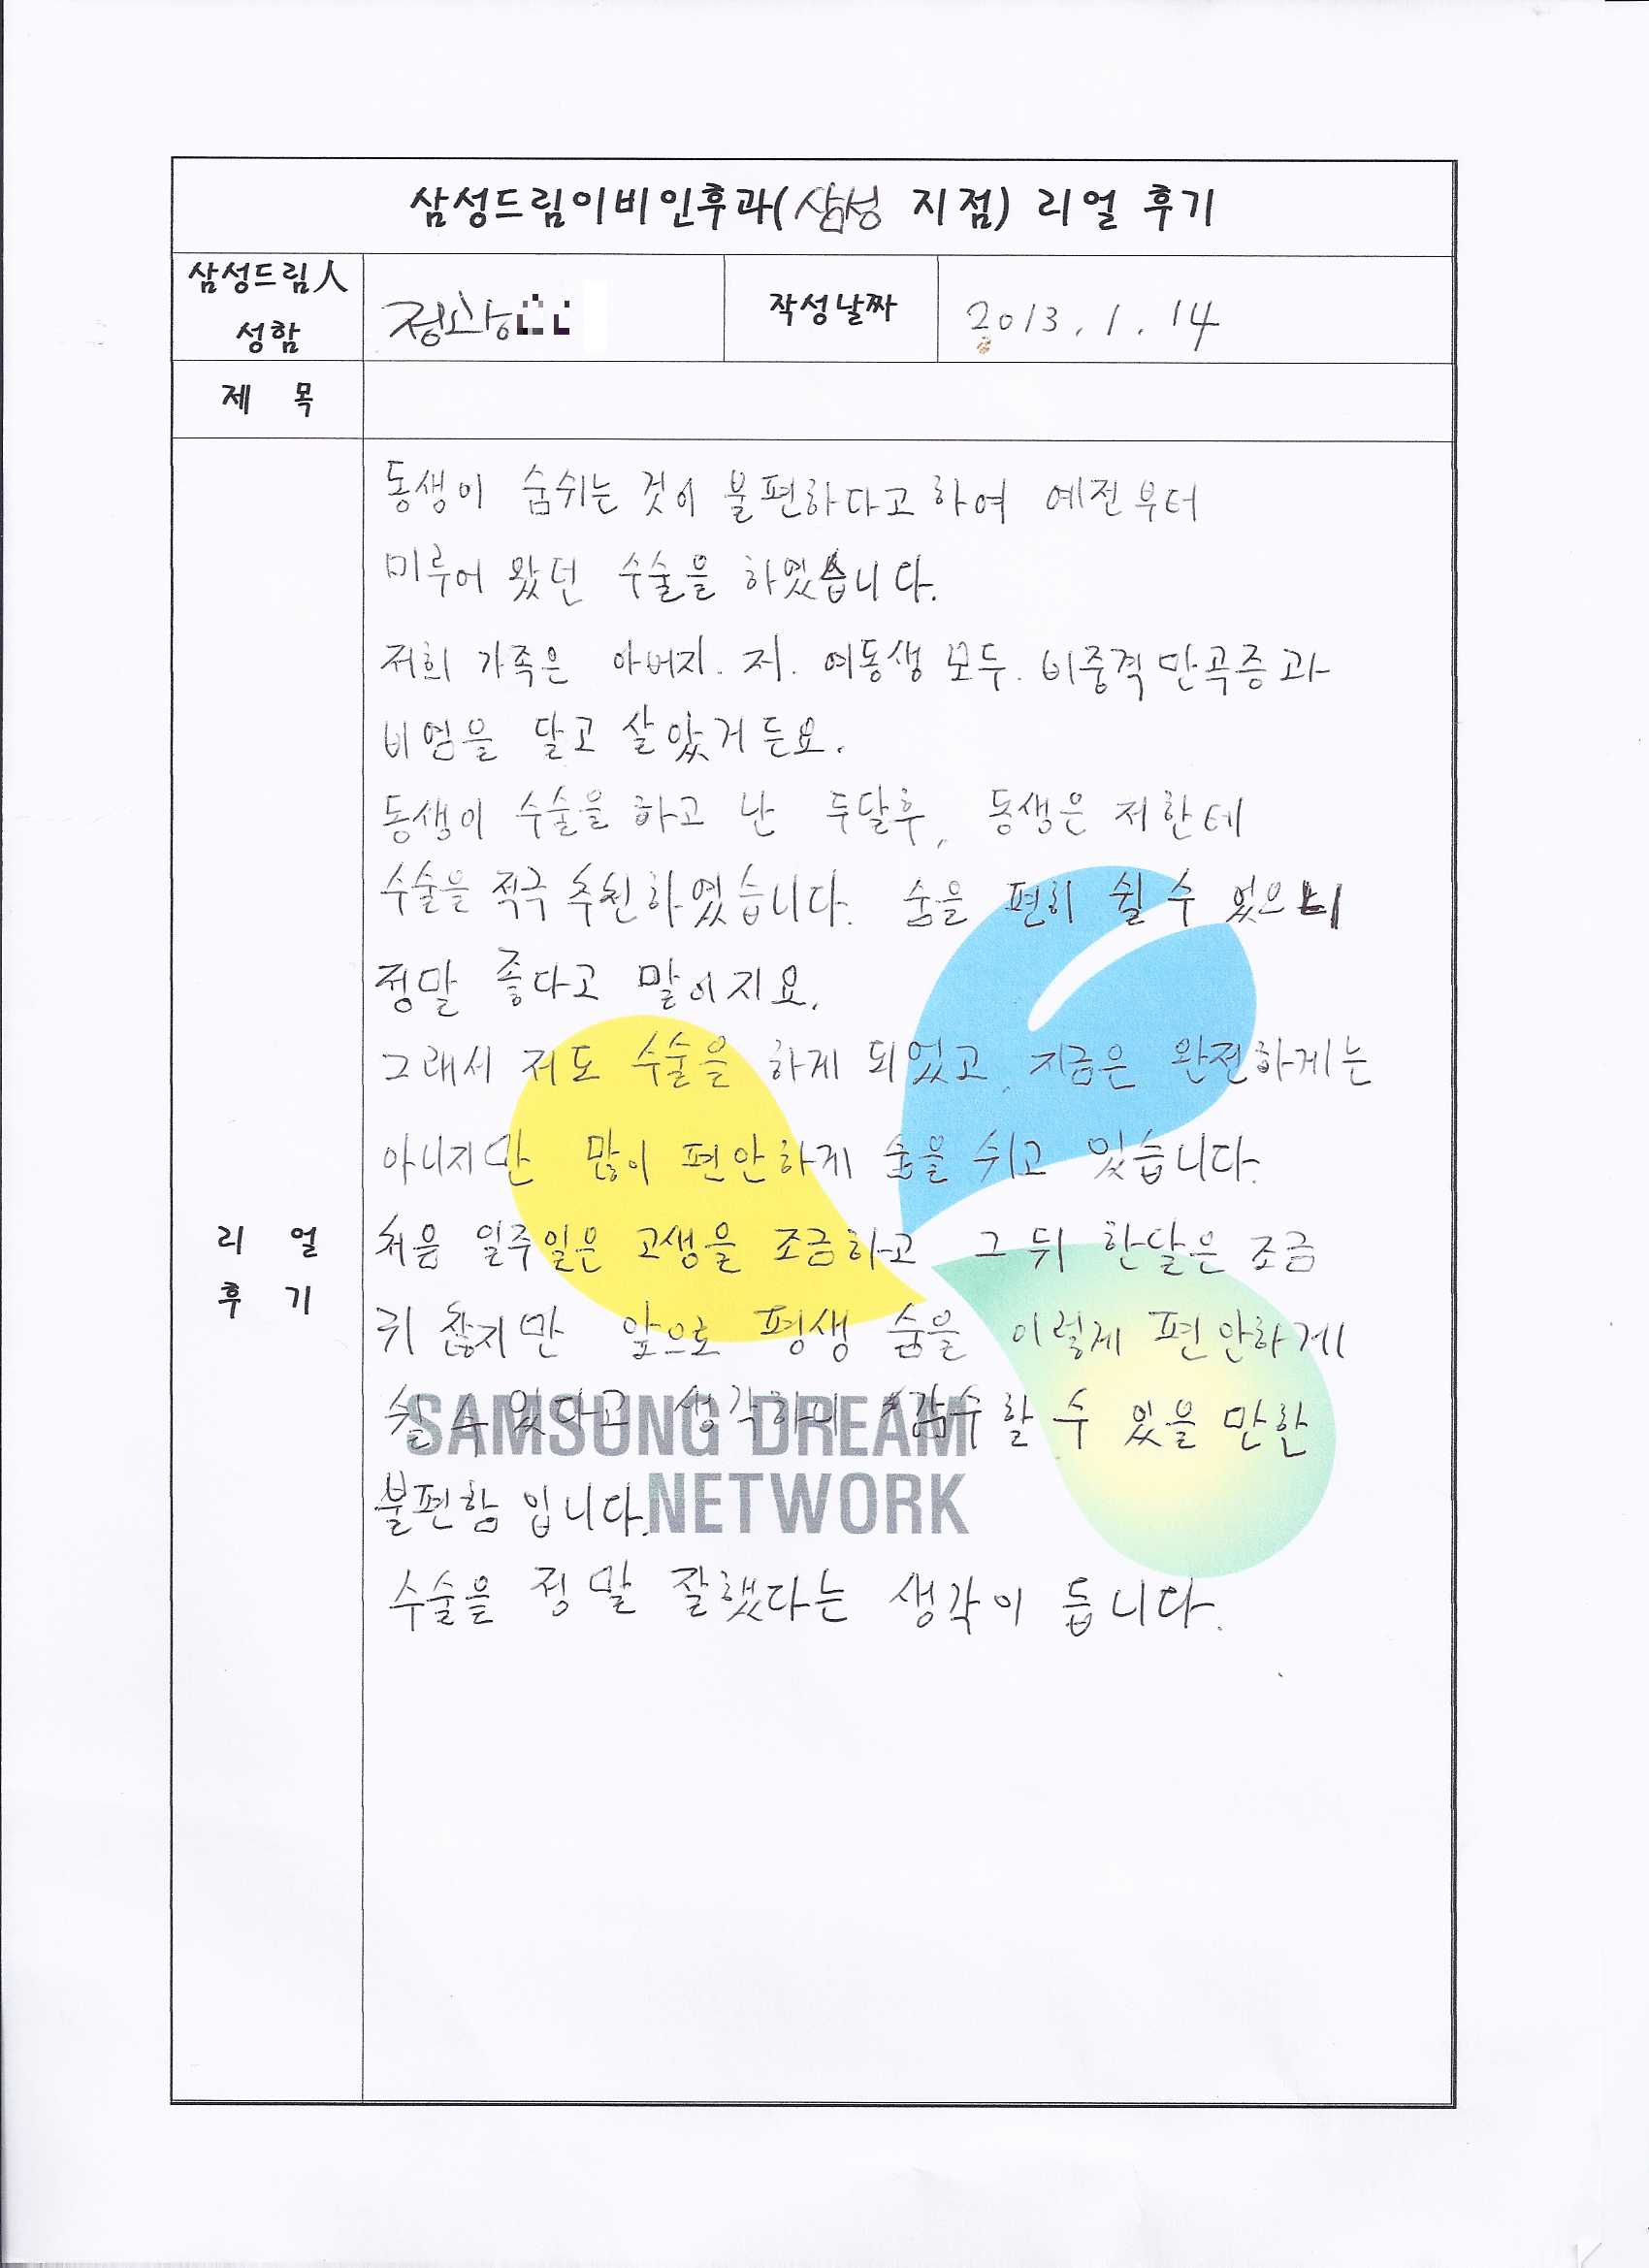 삼성드림이비인후과(삼성 지점) 리얼 후기
삼성드림人 성함
작성날짜 2013. 1. 14
제 목
동생이 숨쉬는 것이 불편하다고 하여 예전부터
미루어 왔던 수술을 하였습니다.
저희 가족은 아버지. 저. 여동생 모두. 비중격만곡증과
비염을 달고 살았거든요.
동생이 수술을 하고 난 두달후, 동생은 저한테
수술을 적극 추천하였습니다. 숨을 편히 쉴 수 있으니
정말 좋다고 말이지요.
그래서 저도 수술을 하게 되었고, 지금은 완전하게는
아니지만 많이 편안하게 숨을 쉬고 있습니다.
리 얼
후 기
처음 일주일은 고생을 조금하고 그 뒤 한달은 조금
귀찮지만 앞으로 평생 숨을 이렇게 편안하게
쉴 수 있다고 생각하니 감수할 수 있을 만한
불편함 입니다.
수술을 정말 잘했다는 생각이 듭니다.
SAMSUNG DREAM
NETWORK